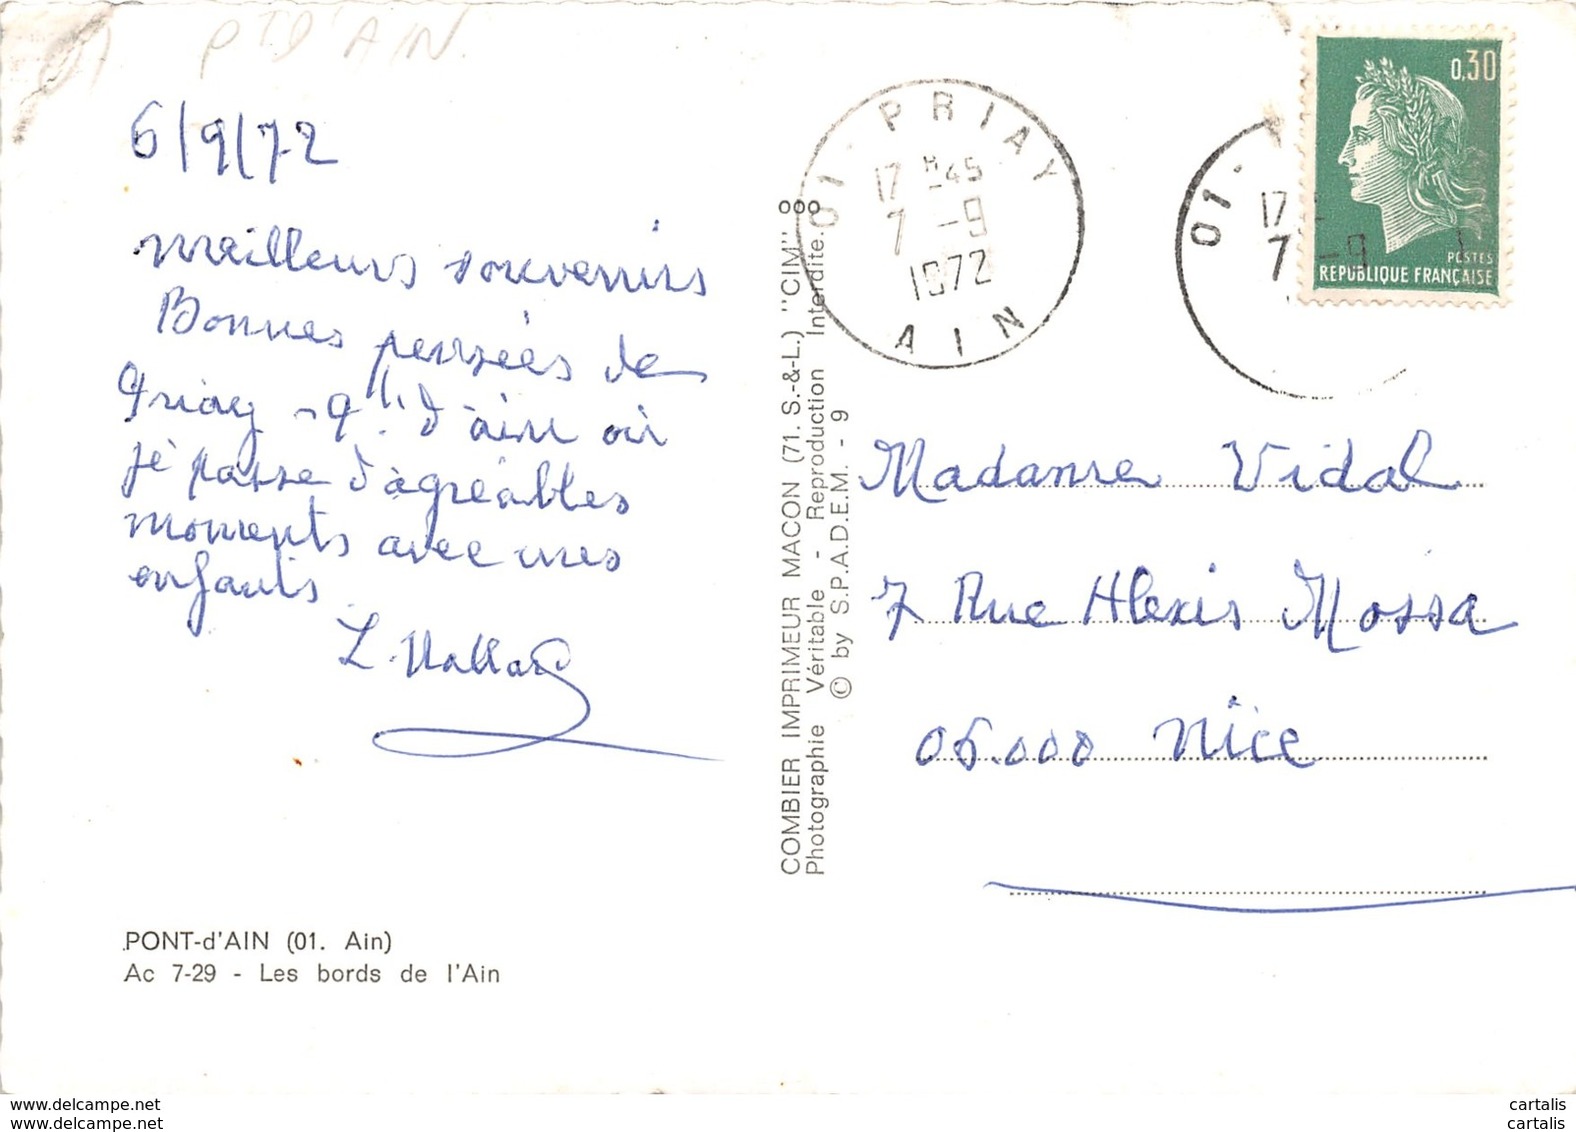 01 PT D'AIN.
6/9/72
Meilleurs souvenirs
Bonnes pensées de
Priay - Pt d'ain où
je passe d'agréables
moments avec mes
enfants
PONT-d'AIN (01. Ain)
Ac 7-29 - Les bords de l'Ain
COMBIER IMPRIMEUR MACON (71. S.-&-L.) "CIM"
Photographie Véritable - Reproduction Interdite
© by S.P.A.D.E.M. - 9
01 - PRIAY
17 H 45
7 - 9
1972
AIN
01 -
17
7 - 9
0,30
POSTES
REPUBLIQUE FRANÇAISE
Madame Vidal
7 Rue Alexis Mossa
06.000 Nice
www.delcampe.net
www.delcampe.net
cartalis
cartalis